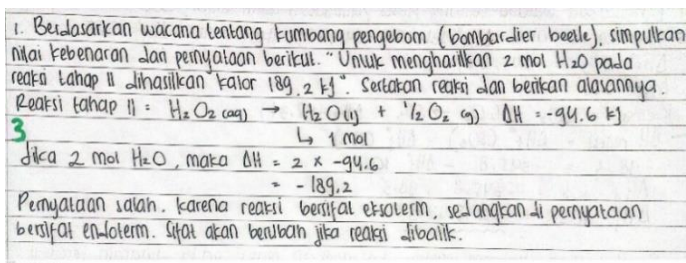 1. Berdasarkan wacana tentang kumbang pengebom (bombardier beetle), simpulkan
nilai kebenaran dari pernyataan berikut. "Untuk menghasilkan 2 mol H₂O pada
reaksi tahap II dihasilkan kalor 189,2 kJ". Sertakan reaksi dan berikan alasannya.
Reaksi tahap II = H₂O₂ (aq) → H₂O (l) + ½ O₂ (g) ΔH = -94.6 kJ
3 ↳ 1 mol
Jika 2 mol H₂O, maka ΔH = 2 x -94.6
= - 189,2
Pernyataan salah. karena reaksi bersifat eksoterm, sedangkan di pernyataan
bersifat endoterm. Sifat akan berubah jika reaksi dibalik.